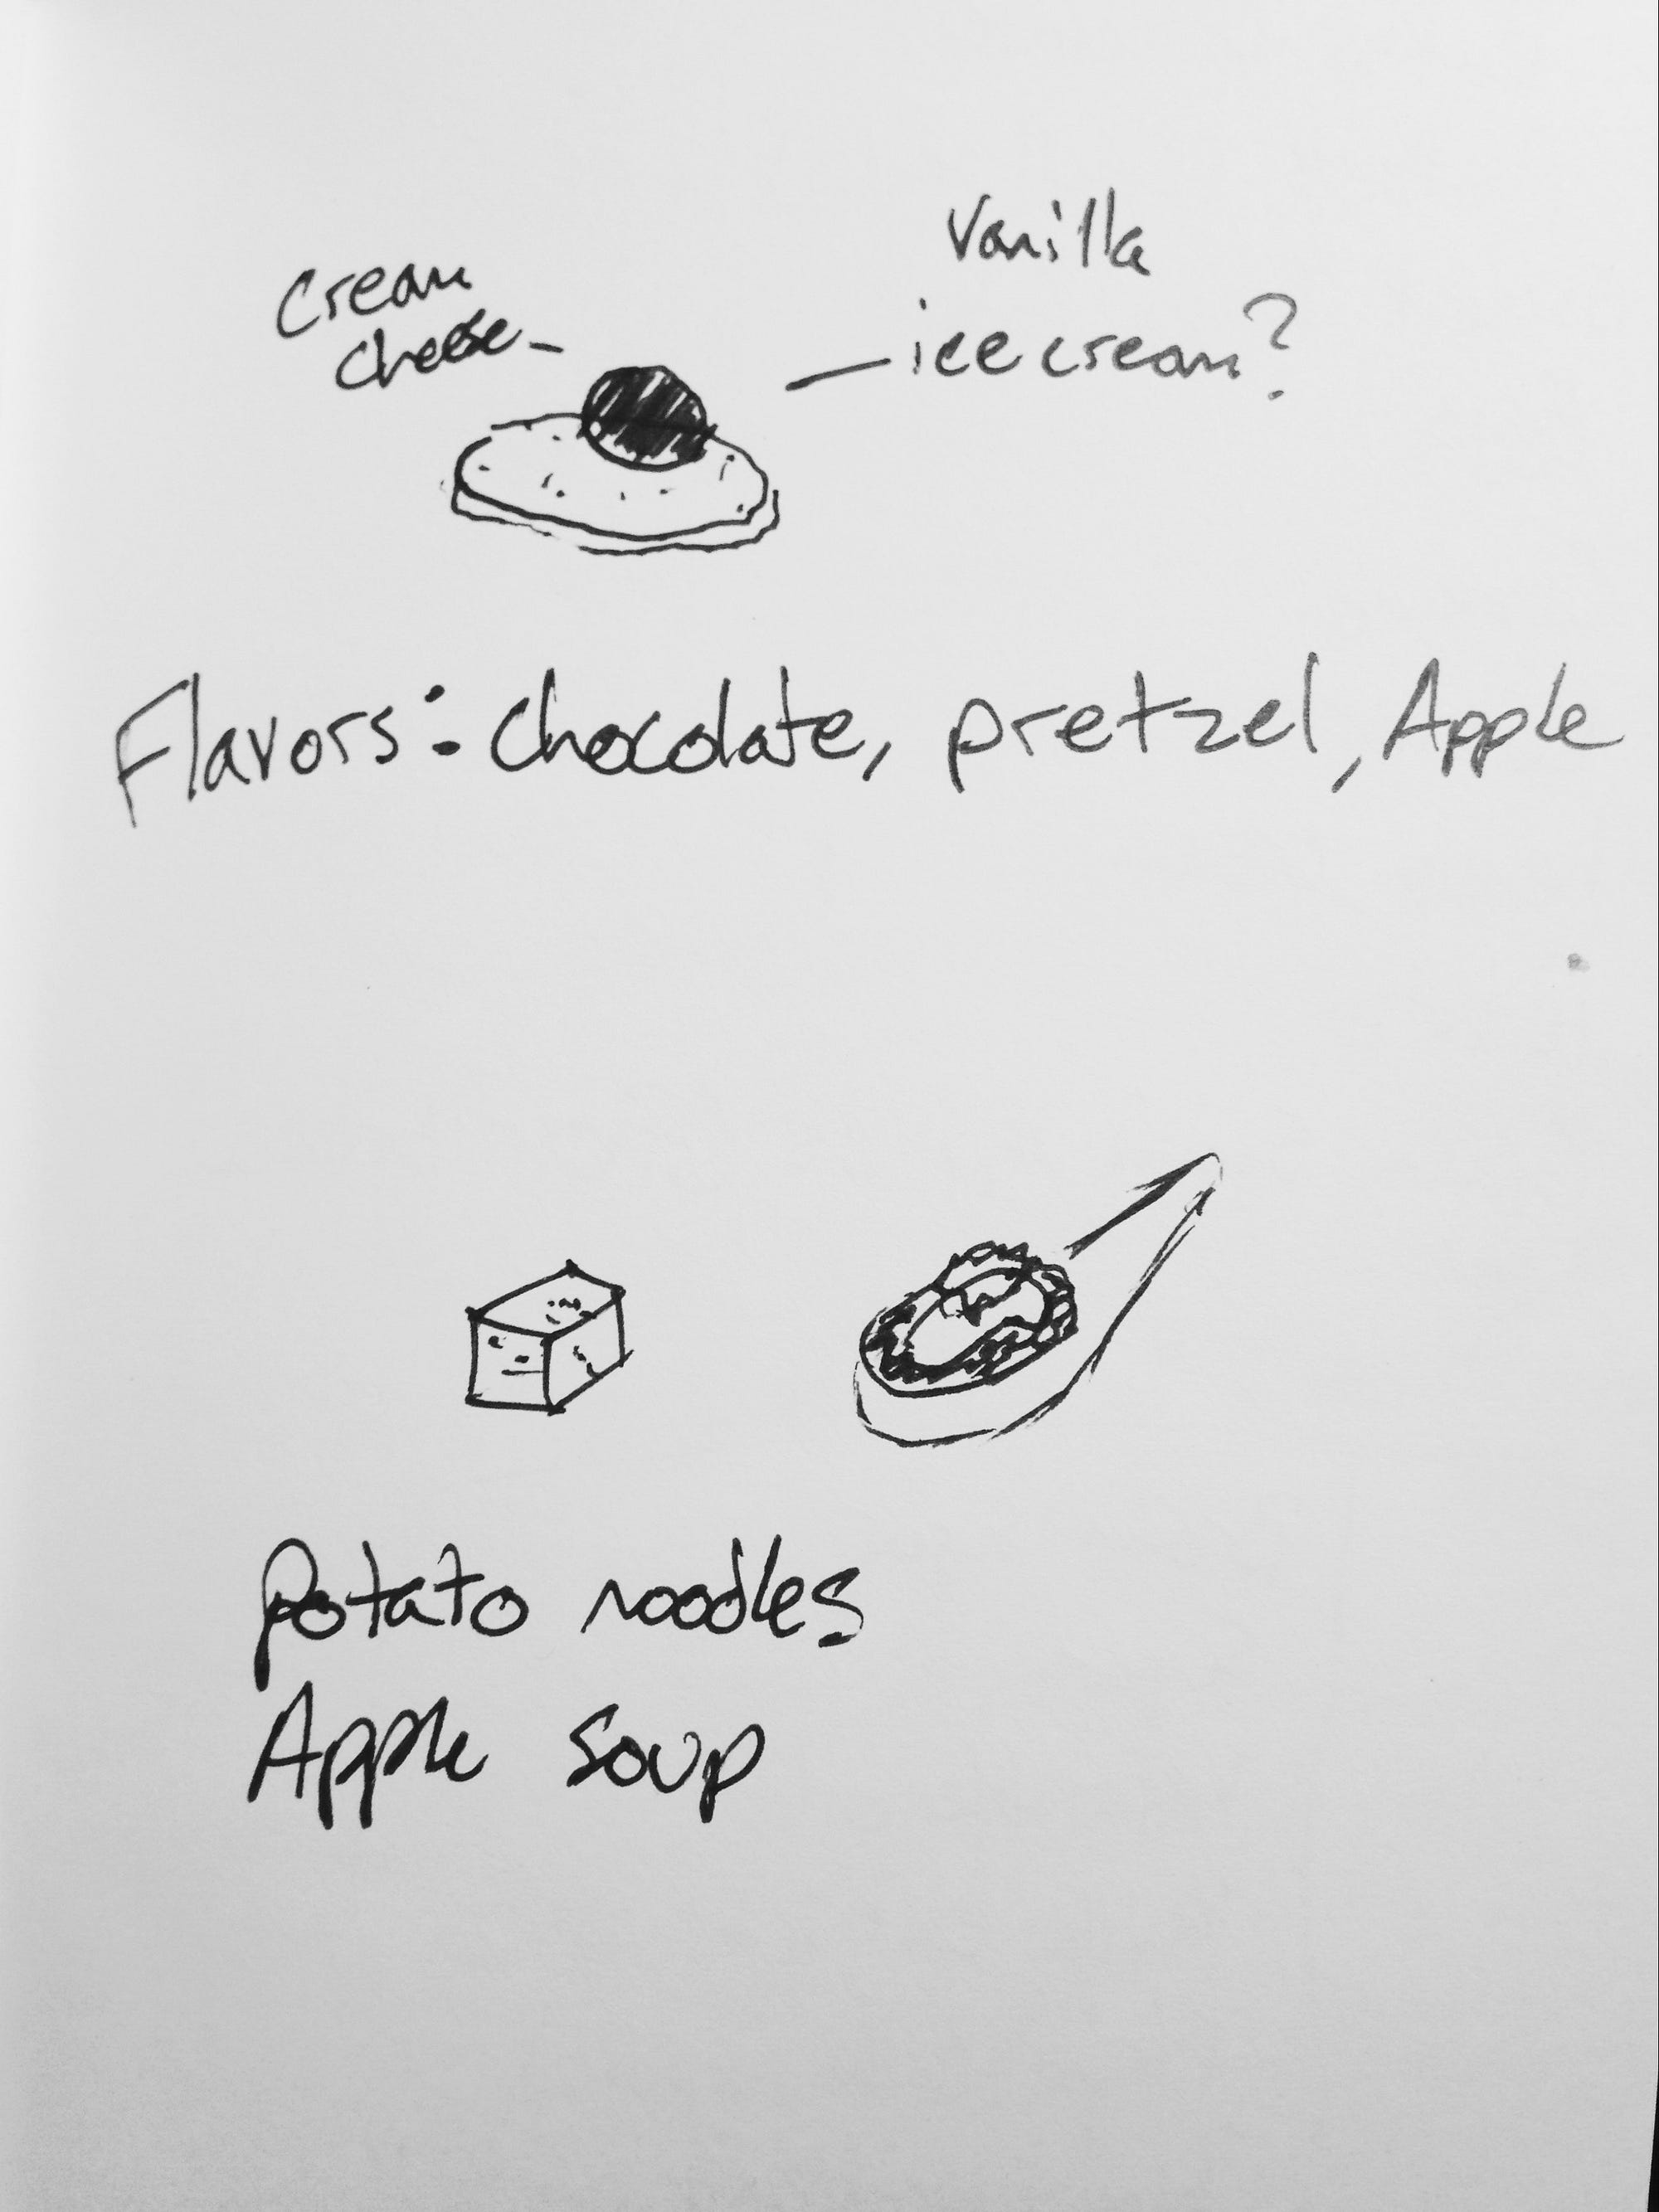 Cream
cheese
Vanilla
ice cream?
Flavors: chocolate, pretzel, Apple
potato noodles
Apple soup